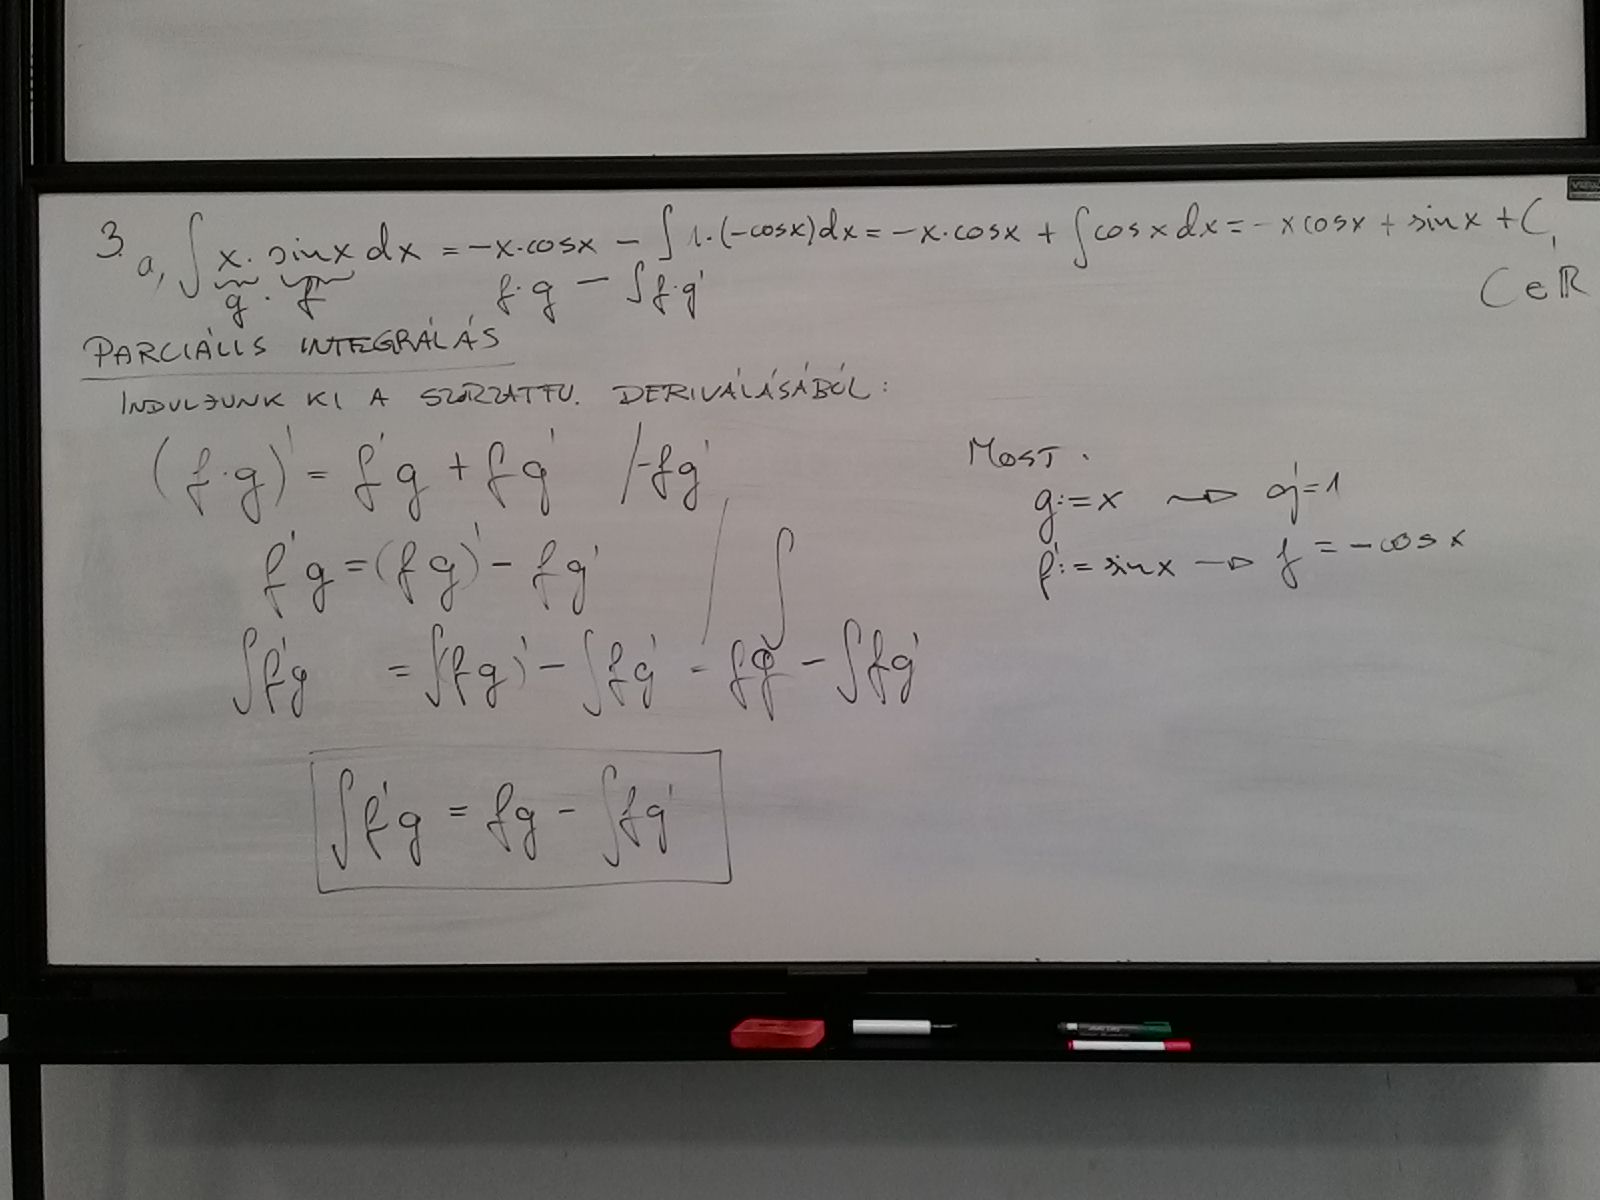 3. a, ∫ x · sinx dx = -x·cosx - ∫ 1·(-cosx)dx = -x·cosx + ∫ cosx dx = -x cosx + sinx + C,
g · f' f·g - ∫f·g' C∈ℝ
PARCIÁLIS INTEGRÁLÁS
INDULJUNK KI A SZORZATFV. DERIVÁLÁSÁBÓL:
(f·g)' = f'g + fg' /-fg'
f'g = (fg)' - fg' / ∫
∫f'g = ∫(fg)' - ∫fg' = fg - ∫fg'
∫f'g = fg - ∫fg'
MOST:
g := x → g' = 1
f' := sinx → f = -cosx